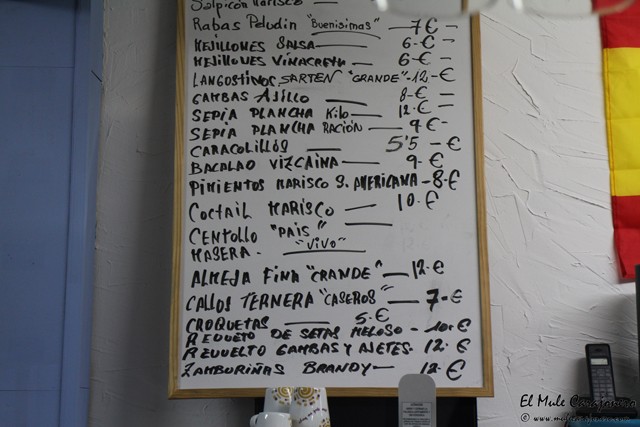 Salpicón Marisco —
Rabas Peludin "Buenisimas" — 7 € —
MEJILLONES SALSA — 6.€ —
MEJILLONES VINAGRETA — 6.€ —
LANGOSTINOS SARTEN "GRANDE" - 12,- €
GAMBAS AJILLO — 8-€ —
SEPIA PLANCHA Kilo — 12.€ —
SEPIA PLANCHA RACIÓN — 9 €-
CARACOLILLOS — 5'5 - €
BACALAO VIZCAINA — 9.€
PIMIENTOS MARISCO S. AMERICANA - 8.€
COCTAIL MARISCO — 10.€
CENTOLLO "PAIS" —
MASERA. "VIVO"
ALMEJA FINA "GRANDE" — 12.€
CALLOS TERNERA "CASEROS" — 7.€
CROQUETAS — 5.€
REVUETO DE SETAS MELOSO - 10.€
REVUELTO GAMBAS Y AJETES. 12.€
ZAMBURIÑAS BRANDY — 12.€
El Mule Carajonero